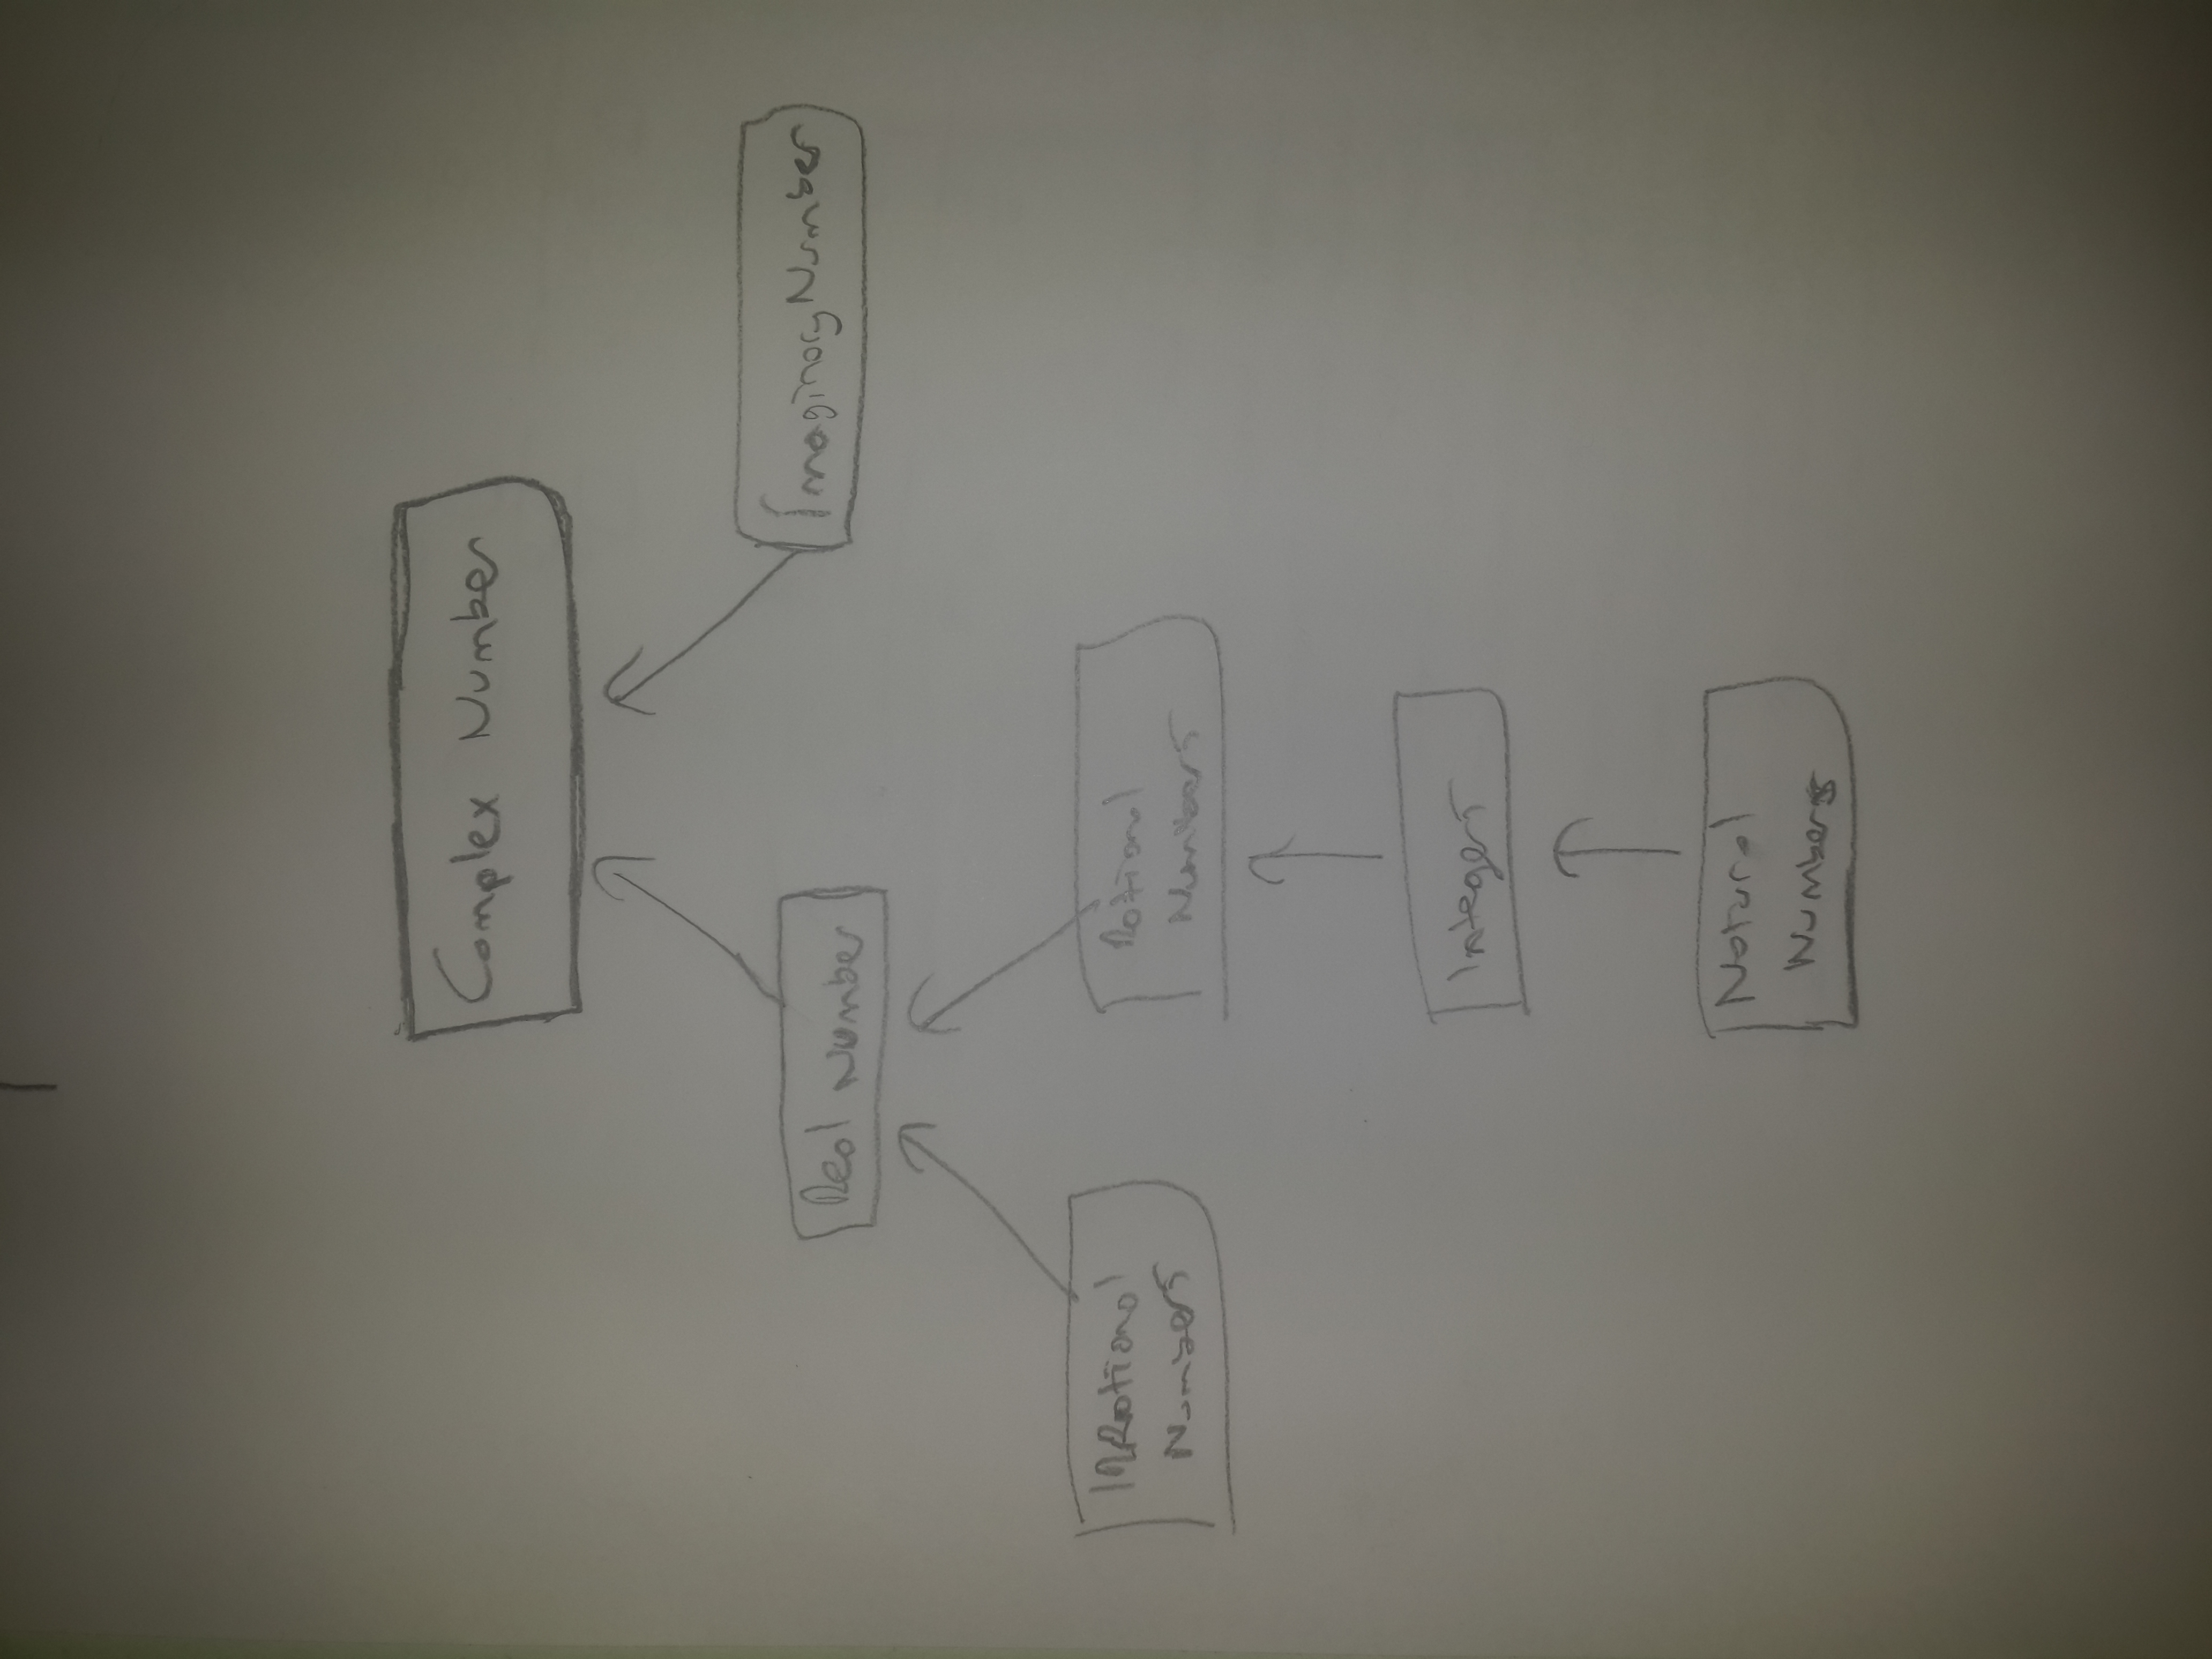 Complex Number
Real Number
Imaginary Number
IRRational
Numbers
Rational
Numbers
Integers
Natural
Numbers